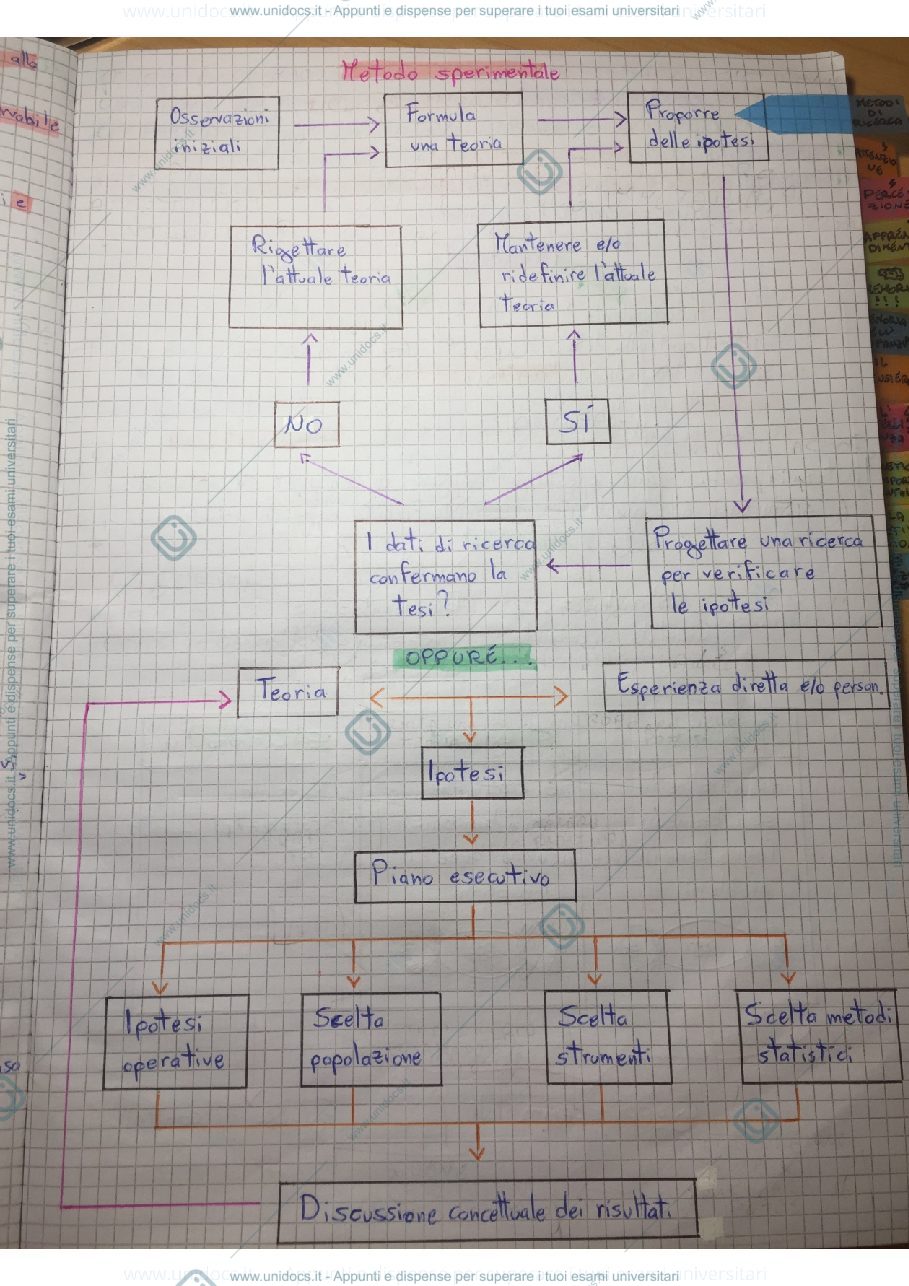 www.unidocs.it - Appunti e dispense per superare i tuoi esami universitari
Metodo sperimentale
Osservazioni
iniziali
Formula
una teoria
Proporre
delle ipotesi
METODI
DI
RICERCA
Rigettare
l'attuale teoria
Mantenere e/o
ridefinire l'attuale
teoria
NO
SÍ
I dati di ricerca
confermano la
tesi?
Progettare una ricerca
per verificare
le ipotesi
OPPURE...
Teoria
Esperienza diretta e/o person.
Ipotesi
Piano esecutivo
Ipotesi
operative
Scelta
popolazione
Scelta
strumenti
Scelta metodi
statistici
Discussione concettuale dei risultati
www.unidocs.it - Appunti e dispense per superare i tuoi esami universitari